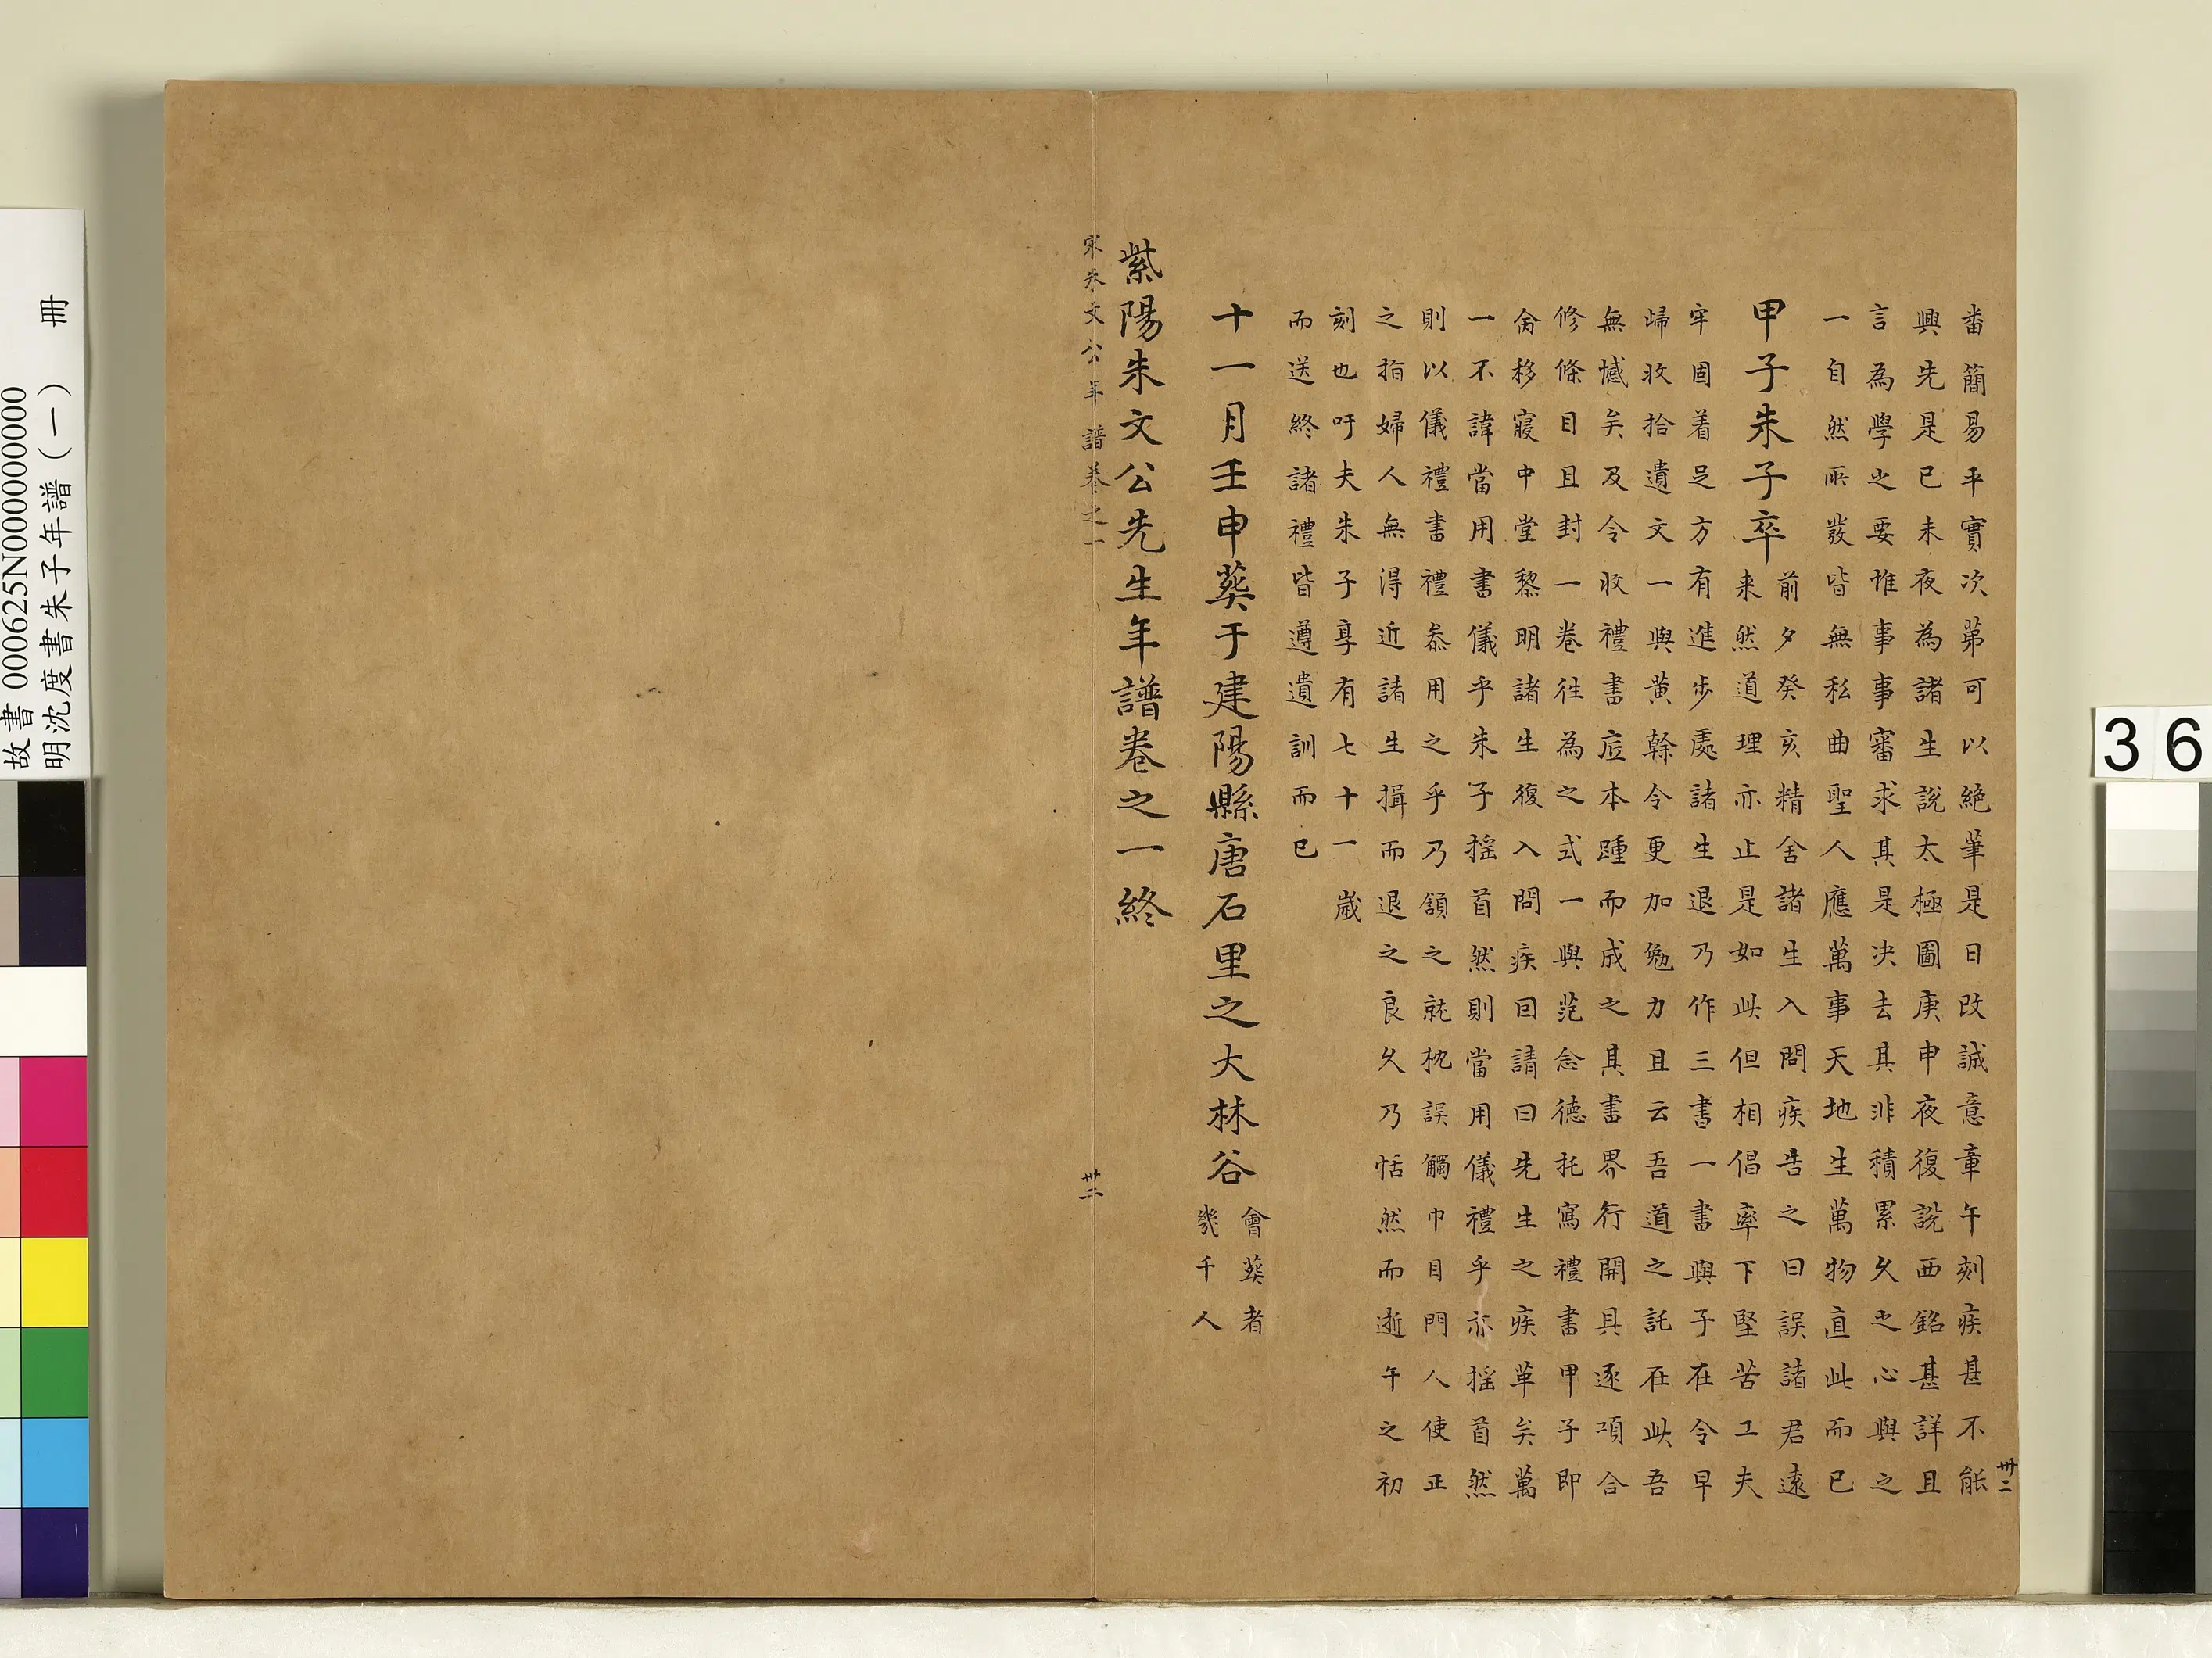 畨簡易平實次第可以絕筆是日改誠意章午刻疾甚不能
興先是己未夜為諸生說太極圖庚申夜復說西銘甚詳且
言為學之要惟事事審求其是決去其非積累久之心與之
一自然所發皆無私曲聖人應萬事天地生萬物直此而已
甲子朱子卒
前夕癸亥精舍諸生入問疾告之曰誤諸君遠
来然道理亦止是如此但相倡率下堅苦工夫
牢固着足方有進步處諸生退乃作三書一書與子在令早
歸收拾遺文一與黃榦令更加勉力且云吾道之託在此吾
無憾矣及令收禮書底本踵而成之其書界行開具逐項合
修條目且封一卷往為之式一與范念德托寫禮書甲子即
命移寢中堂黎明諸生復入問疾因請曰先生之疾革矣萬
一不諱當用書儀乎朱子搖首然則當用儀禮乎亦搖首然
則以儀禮書禮叅用之乎乃頷之就枕誤觸巾目門人使正
之指婦人無得近諸生揖而退之良久乃恬然而逝午之初
刻也吁夫朱子享有七十一歲
而送終諸禮皆遵遺訓而已
十一月壬申葬于建陽縣唐石里之大林谷
會葬者
幾千人
紫陽朱文公先生年譜卷之一終
宋朱文公年譜卷之一
卅二
卅二
故書 000625N000000000
明沈度書朱子年譜(一) 冊
36